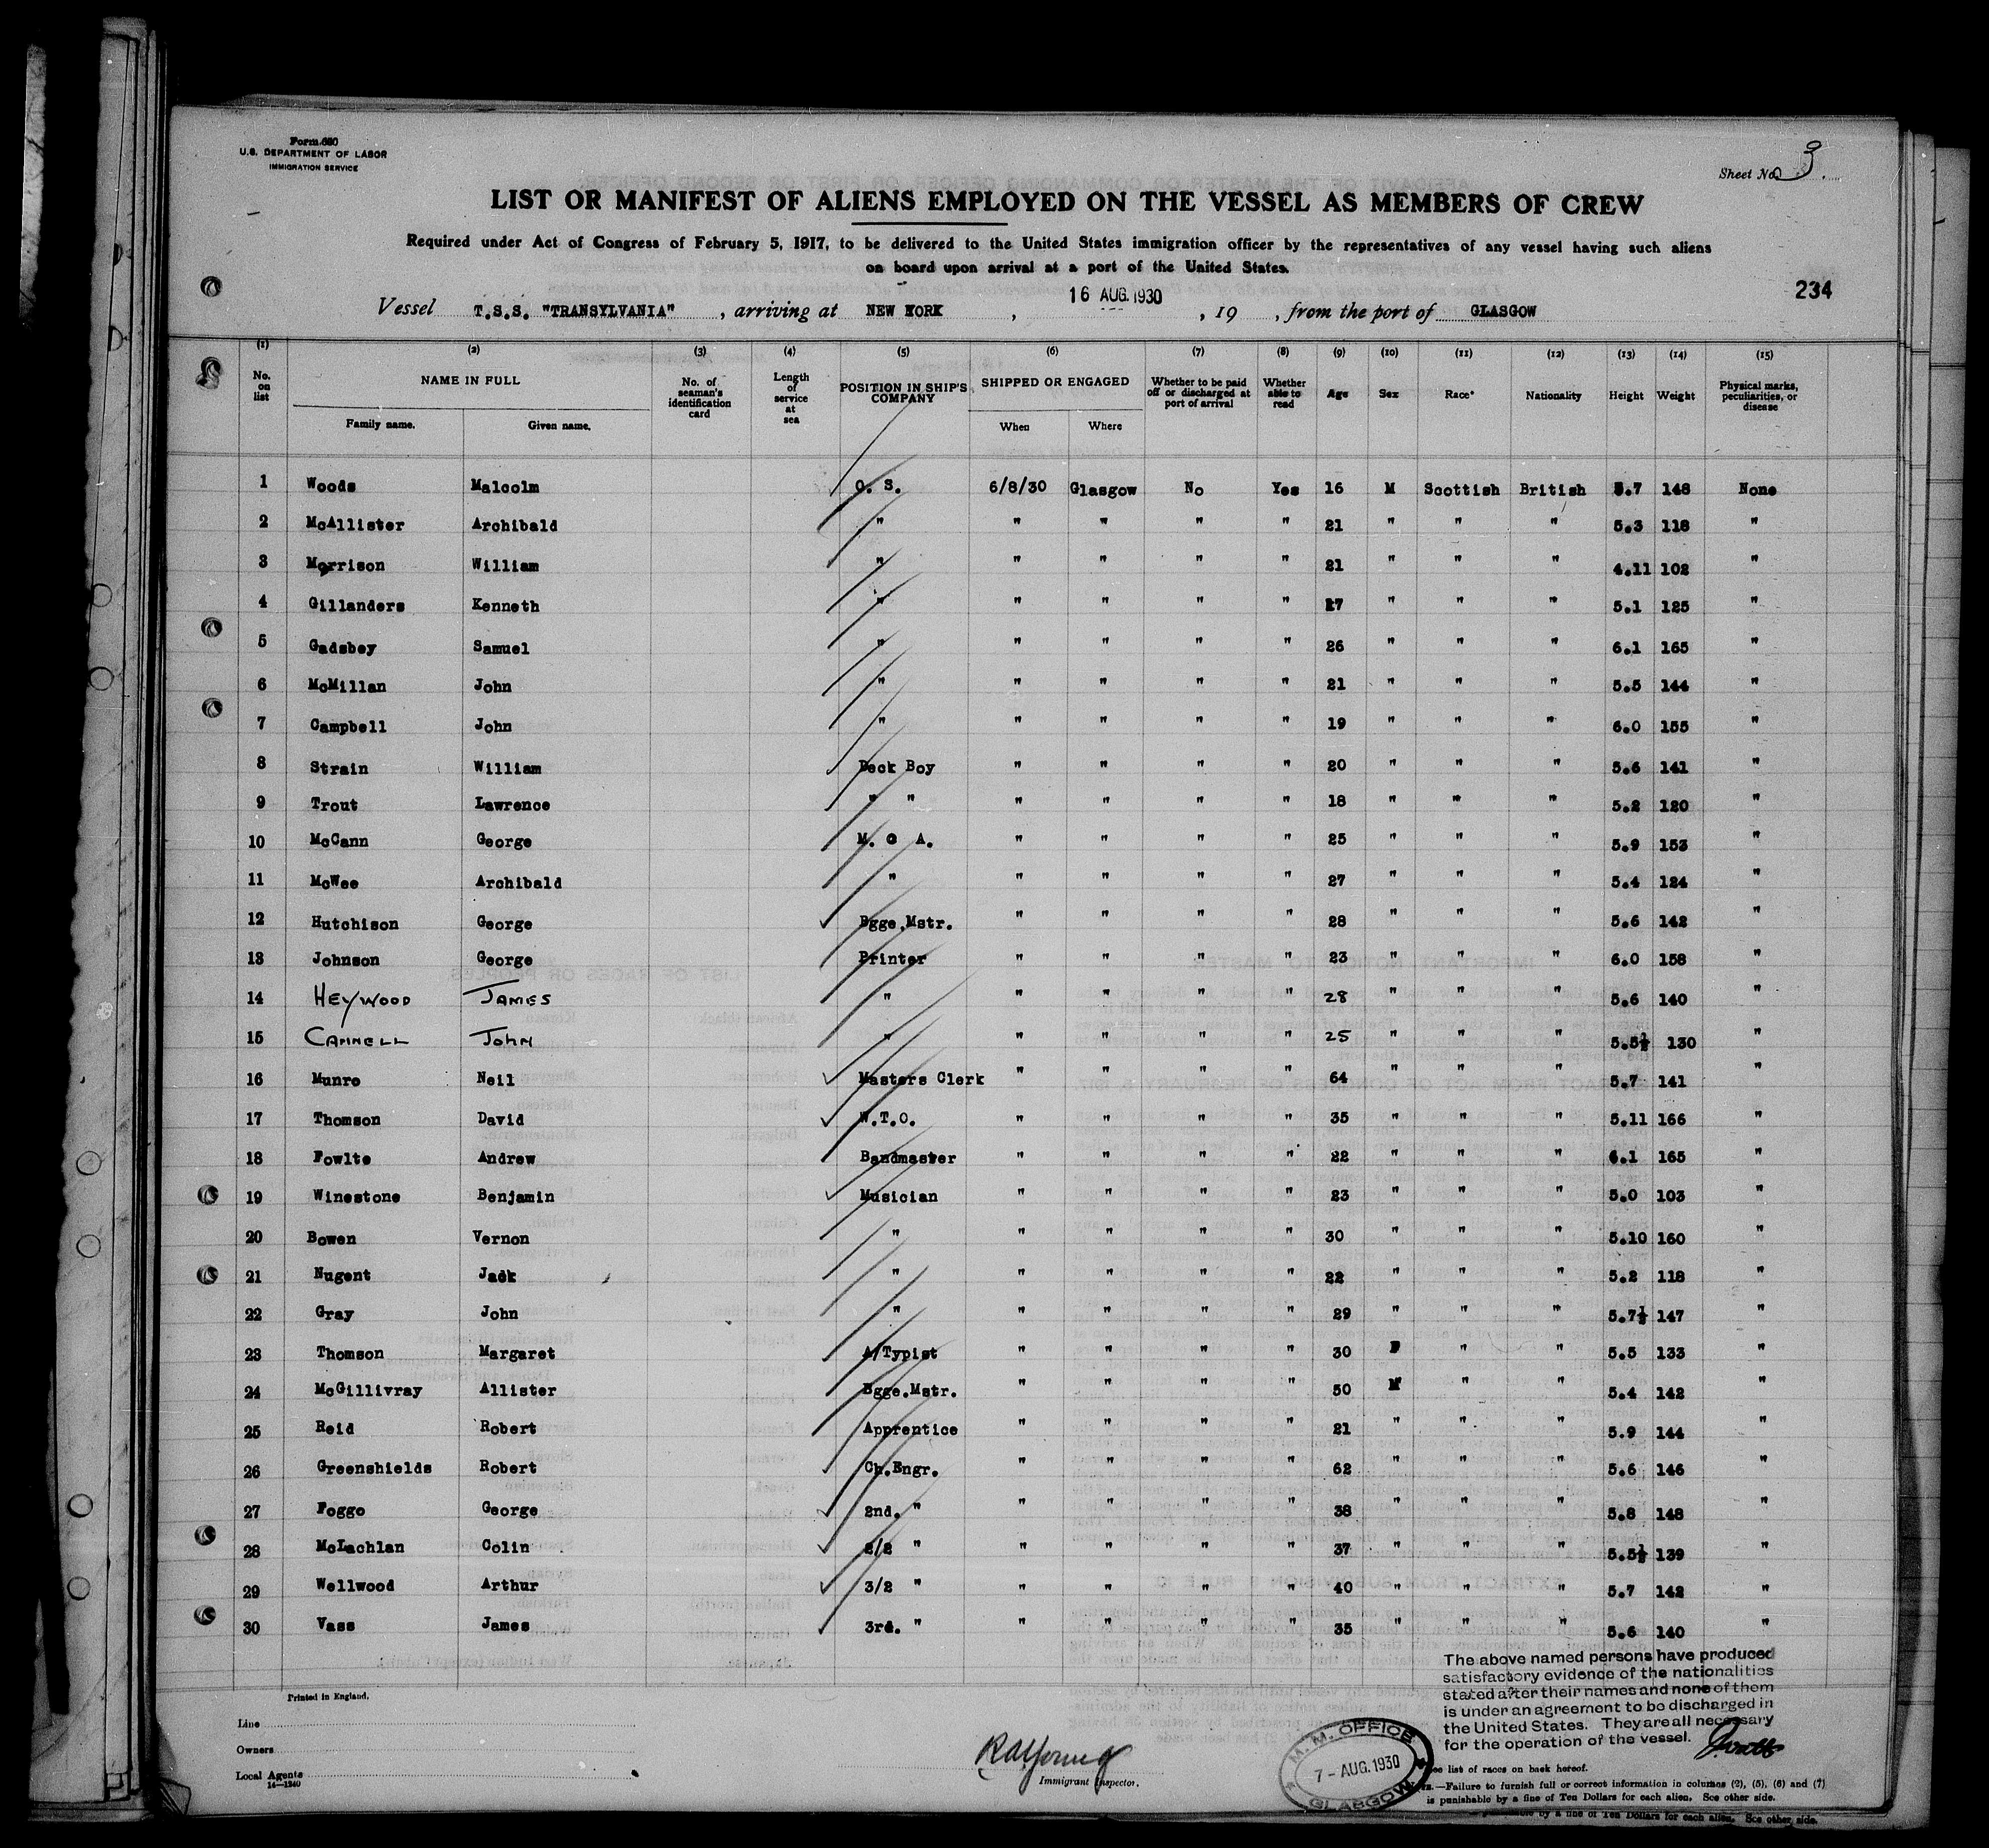 Form 680
U.S. DEPARTMENT OF LABOR
IMMIGRATION SERVICE
Sheet No. 3.
LIST OR MANIFEST OF ALIENS EMPLOYED ON THE VESSEL AS MEMBERS OF CREW
Required under Act of Congress of February 5, 1917, to be delivered to the United States immigration officer by the representatives of any vessel having such aliens
on board upon arrival at a port of the United States.
234
Vessel T.S.S. "TRANSYLVANIA" , arriving at NEW YORK , 16 AUG. 1930 , 19 , from the port of GLASGOW
(1) (2) (3) (4) (5) (6) (7) (8) (9) (10) (11) (12) (13) (14) (15)
No. on list NAME IN FULL Family name. Given name. No. of seaman's identification card Length of service at sea POSITION IN SHIP'S COMPANY SHIPPED OR ENGAGED When Where Whether to be paid off or discharged at port of arrival Whether able to read Age Sex Race* Nationality Height Weight Physical marks, peculiarities, or disease
1 Woods Malcolm O. S. 6/8/30 Glasgow No Yes 16 M Scottish British 5.7 148 None
2 McAllister Archibald " " " " " 21 " " " 5.3 118 "
3 Morrison William " " " " " 21 " " " 4.11 102 "
4 Gillanders Kenneth " " " " " 27 " " " 5.1 125 "
5 Gadsbey Samuel " " " " " 26 " " " 6.1 165 "
6 McMillan John " " " " " 21 " " " 5.5 144 "
7 Campbell John " " " " " 19 " " " 6.0 155 "
8 Strain William Deck Boy " " " " 20 " " " 5.6 141 "
9 Trout Lawrence " " " " " " 18 " " " 5.2 120 "
10 McCann George M. O A. " " " " 25 " " " 5.9 153 "
11 McWee Archibald " " " " " 27 " " " 5.4 124 "
12 Hutchison George Bgge.Mstr. " " " " 28 " " " 5.6 142 "
13 Johnson George Printer " " " " 23 " " " 6.0 158 "
14 HEYWOOD JAMES " " " " " 28 " " " 5.6 140 "
15 CANNELL JOHN " " " " " 25 " " " 5.5½ 130 "
16 Munro Neil Masters Clerk " " " " 64 " " " 5.7 141 "
17 Thomson David W.T.O. " " " " 35 " " " 5.11 166 "
18 Fowlte Andrew Bandmaster " " " " 22 " " " 6.1 165 "
19 Winestone Benjamin Musician " " " " 23 " " " 5.0 103 "
20 Bowen Vernon " " " " " 30 " " " 5.10 160 "
21 Nugent Jack " " " " " 22 " " " 5.2 118 "
22 Gray John " " " " " 29 " " " 5.7½ 147 "
23 Thomson Margaret A/Typist " " " " 30 F " " 5.5 133 "
24 McGillivray Allister Bgge.Mstr. " " " " 50 M " " 5.4 142 "
25 Reid Robert Apprentice " " " " 21 " " " 5.9 144 "
26 Greenshields Robert Ch.Engr. " " " " 62 " " " 5.6 146 "
27 Foggo George 2nd. " " " " " 38 " " " 5.8 148 "
28 McLachlan Colin 2/2 " " " " " 37 " " " 5.5½ 139 "
29 Wellwood Arthur 3/2 " " " " " 40 " " " 5.7 142 "
30 Vass James 3rd. " " " " " 35 " " " 5.6 140 "
The above named persons have produced
satisfactory evidence of the nationalities
stated after their names and none of them
is under an agreement to be discharged in
the United States. They are all necessary
for the operation of the vessel.
Printed in England.
Line
Owners
Local Agents
14—1240
Immigrant Inspector.
M. M. OFFICE
7 - AUG. 1930
GLASGOW
See list of races on back hereof.
—Failure to furnish full or correct information in columns (2), (5), (6) and (7)
is punishable by a fine of Ten Dollars for each alien. See other side.
by a fine of Ten Dollars for each alien. See other side.